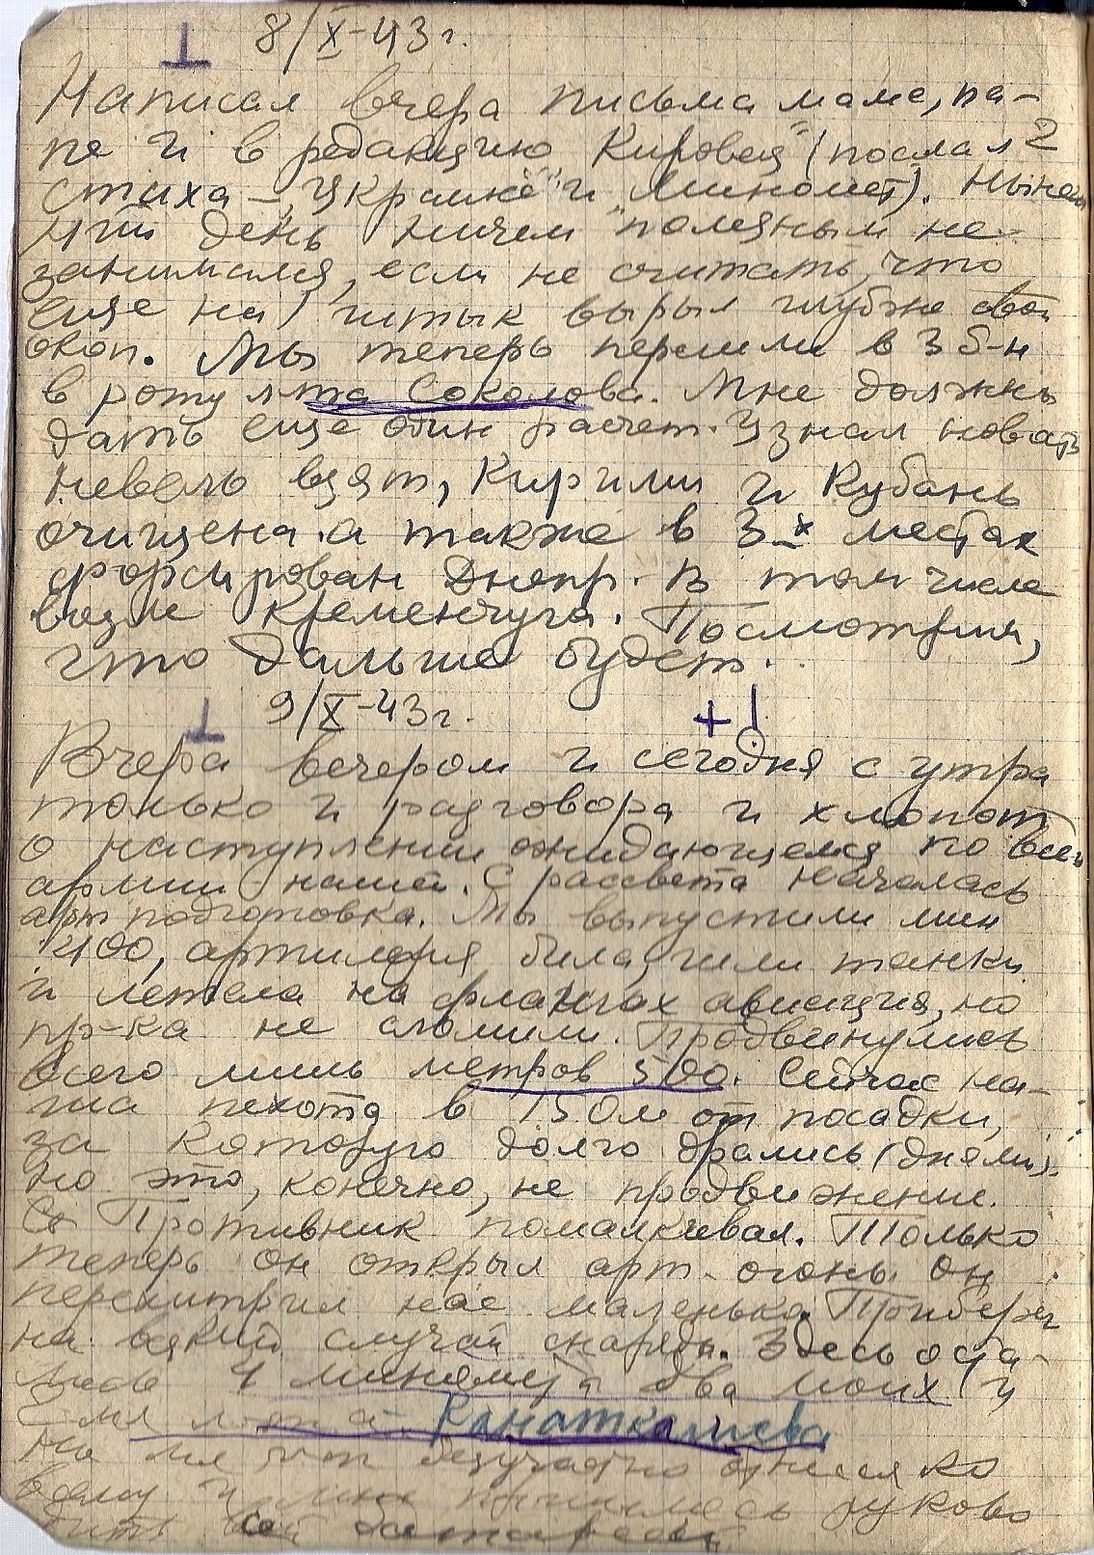 8/X-43 г.
Написал вчера письма маме, па-
пе и в редакцию "Кировец" (послал 2
стиха - "Украине" и "Миномет").
день ничем полезным не
занимался, если не считать, что
еще на 1 штык вырыл глубже свой
окоп. Мы теперь перешли в 3 б-н
в роту л-та Соколова. Мне должны
дать еще один расчет. Узнал новость
Невель взят, Кириши и Кубань
очищена. а также в 3-х местах
форсирован Днепр. В том числе
возле Кременчуга. Посмотрим,
что дальше будет.
9/X-43 г. + !
Вчера вечером и сегодня с утра
только и разговора и хлопот
о наступлении ожидающемся по всей
армии нашей. С рассвета началась
арт подготовка. Мы выпустили мин
400, артиллерия била, шли танки
и летала на флангах авиация, но
пр-ка не сломили. Продвинулись
всего лишь метров 500. Сейчас на-
ша пехота в 150 м от посадки,
за которую долго дрались (днями).
Но это, конечно, не продвижение.
Противник помалкивал. Только
теперь он открыл арт. огонь. Он
перехитрил нас маленько. Приберег
на всякий случай снаряды. Здесь оста-
лись 4 миномета два моих и
2 мл л-та Канаткалиева
Но мл л-т безучастно отнесся ко
всему и мне пришлось руково
дить всей батареей.